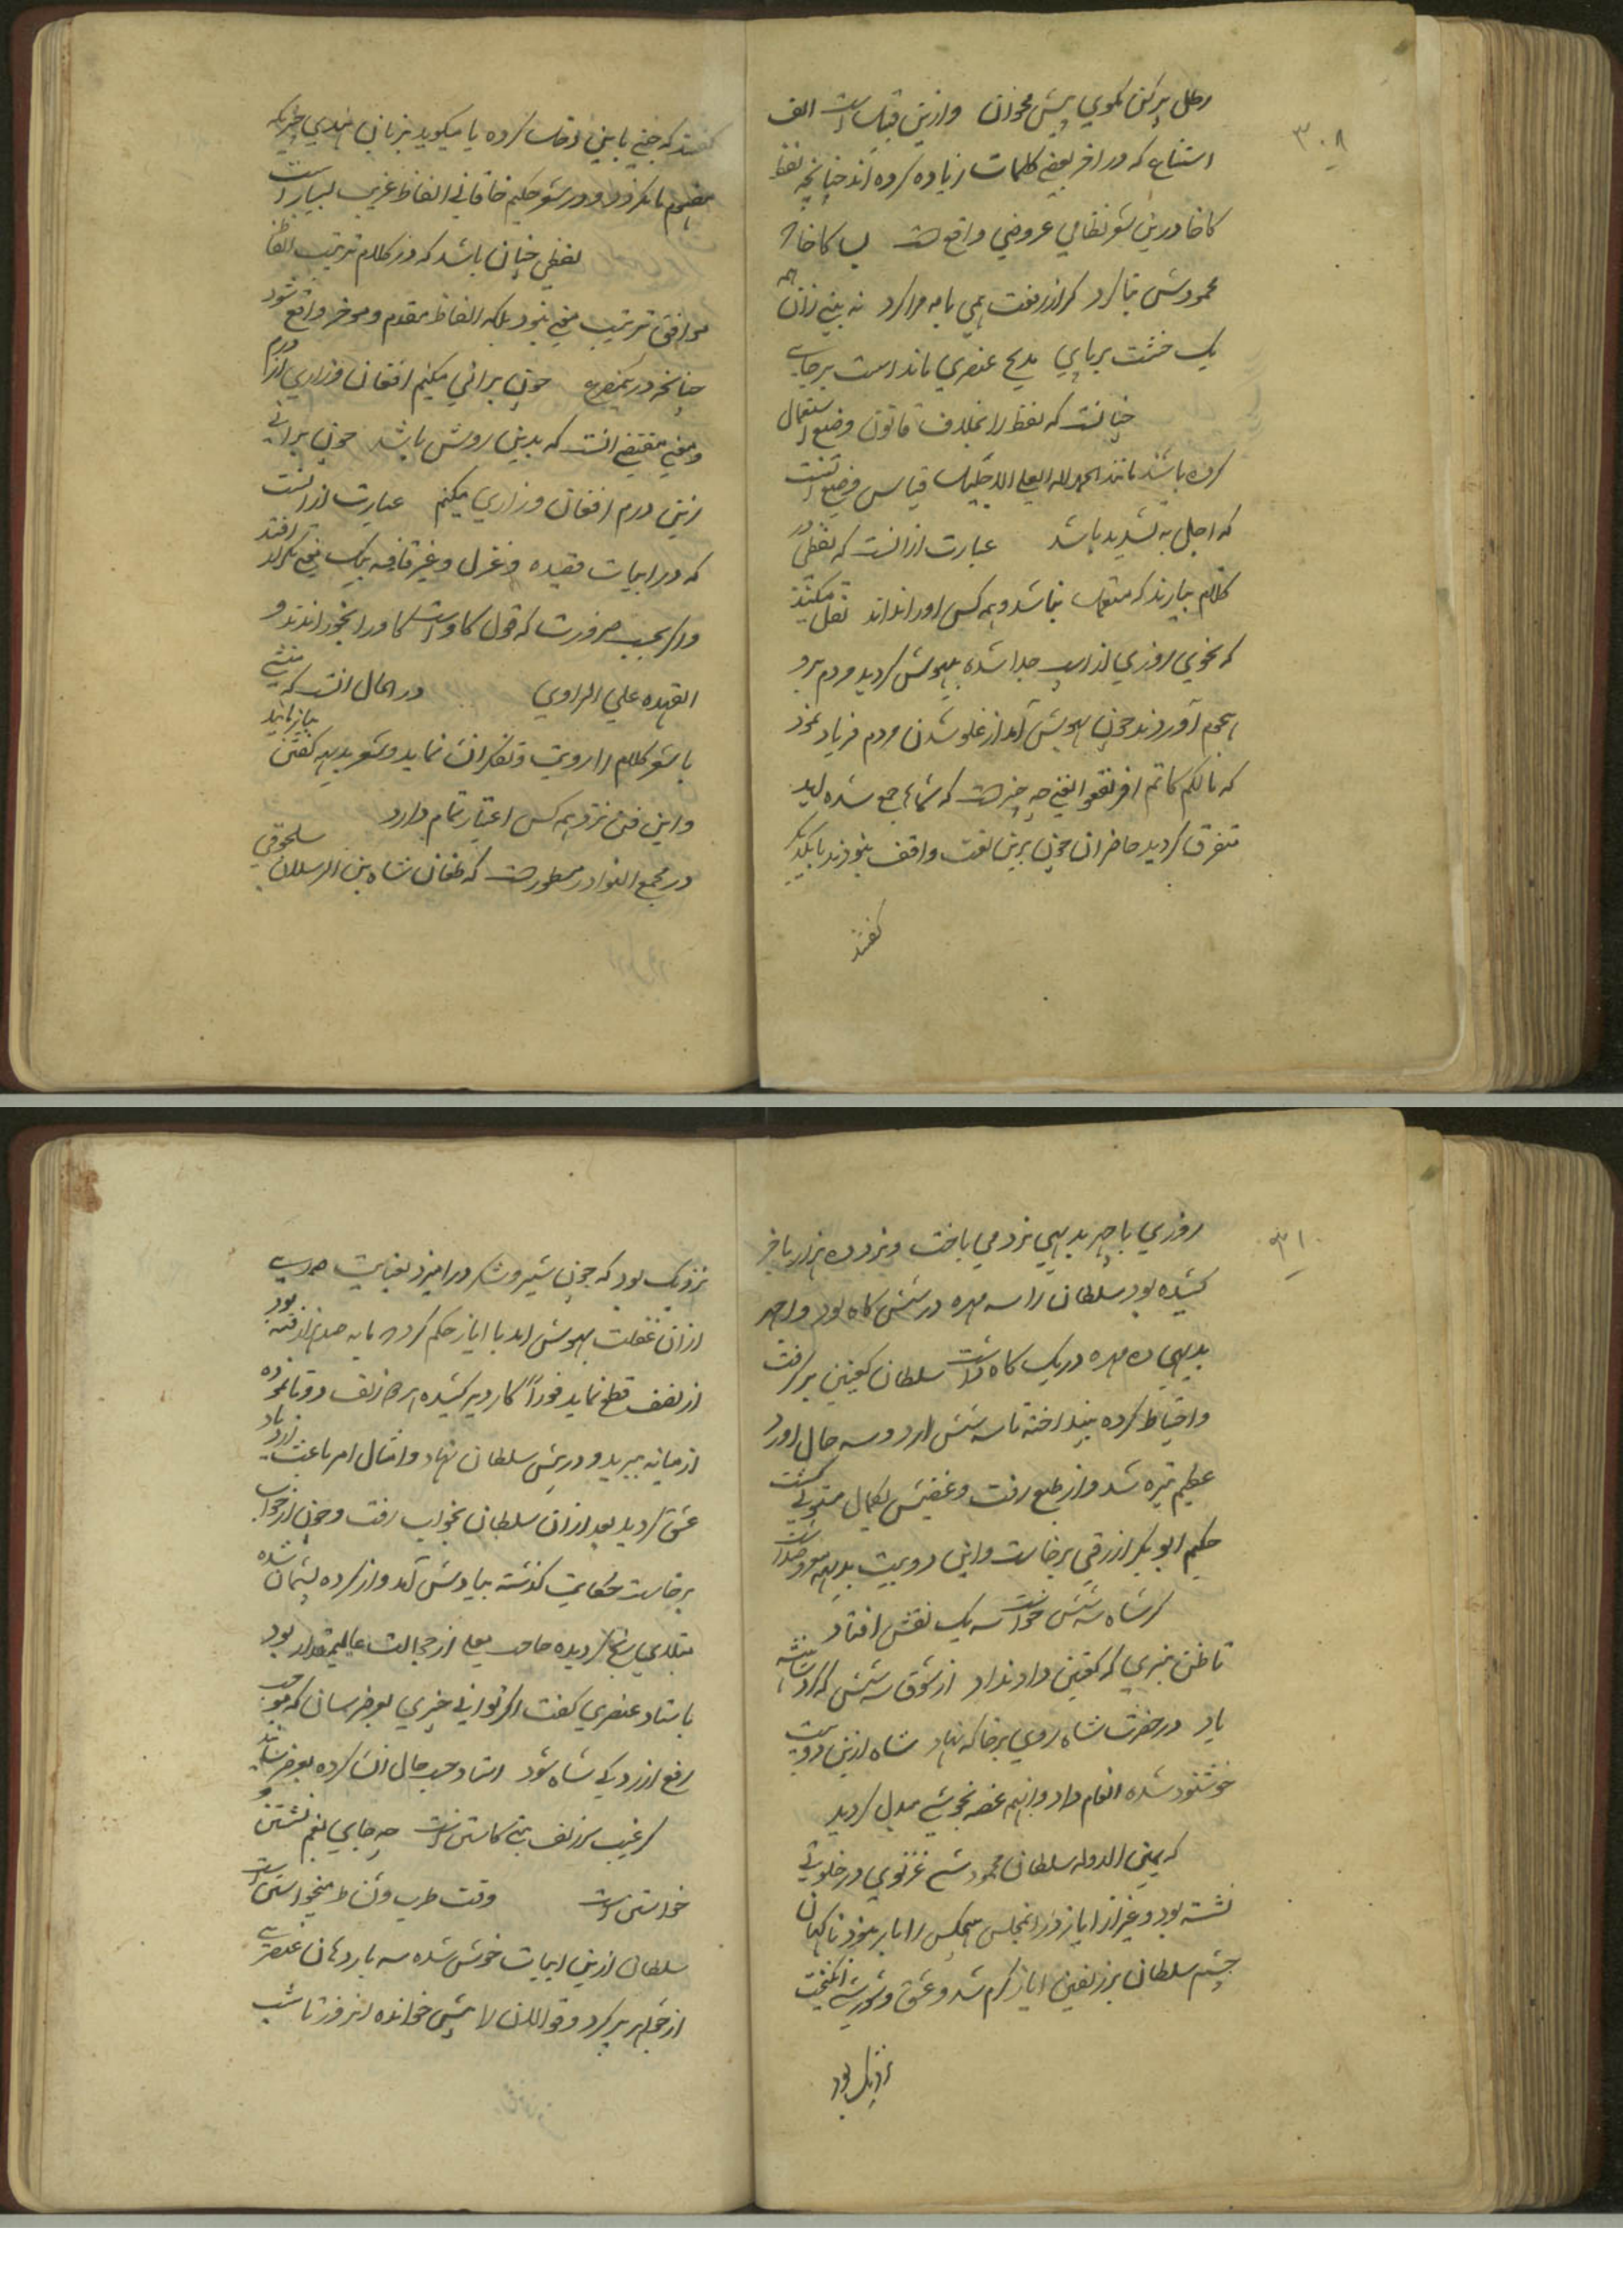 ۳۰۸
رطل پر کن مکوی بیش محزان وازین قبیلست الف
اشباع که در اخر بعضی کلمات زیاده کرده اند چنانچه لفظ
کاخا درین شعر نظامی عروضی واقع است بسا کاخا که
محمودش بنا کرد که از رفعت همی با مه مرا کرد نه بینی زان همه
یک خشت بر پای مدیح عنصری ماند است بر جای
چنانست که لفظ را بخلاف قانون وضع استعمال
کرده باشند مانند الحمد لله العلی الاجلل قیاس وضع آنست
که اجل به تشدید باشد عبارت از انست که لفظی در
کلام بیارند که مستعمل نباشد و همه کس او را نداند نقل میکنند
که نحوی روزی از اسب جدا شده بیهوش گردید مردم برو
هجوم آوردند چون بهوش آمد از غلو شدن مردم فریاد نمود
که مالکم تکاکاتم افرنقعوا یعنی چه چیز است که شما جمع شده اید
متفرق گردید حاضران چون برین لغت واقف نبودند با یکدیگر
کفتند
کفتند که جنی باین دخل کرده یا میکوید بزبان هندی چیزیکه
مفهوم ما نکردد و در شعر حکیم خاقانی الفاظ غریب بسیار است
لفظی چنان باشد که در کلام ترتیب الفاظ
موافق ترتیب معنی نبود بلکه الفاظ مقدم و موخر واقع شود
چنانچه در یکمصرعه چون برانی میکنم افغان و زاری از درم
و معنی مقتضی انست که بدین روش باشد چون برانی
زین درم افغان و زاری میکنم عبارت از انست
که در ابیات قصیده و غزل و غیر قافیه بیک معنی مکرر افتد
و اگر بحسب ضرورتست که قول کاواست کاو را بخورانند و
العهده علی الراوی در حال انست که منشی
یا شعر کلام را رویت و تفکر انشا نماید و شعر بدیهه کفتن بیازماید
و این فن نزد همه کس اعتبار تمام دارد
در مجمع النوادر مسطور است که طغان شاه بن الرسلان سلجوقی
۳۱۰
روزی با احمد بدیهی نرد می باخت و نرد ده هزار باخر
کشیده بود سلطان را سه مهره در شش کاه بود و احمد
بدیهی ده مهره در یک کاه داشت سلطان کعبتین بر کرفت
و احتیاط کرده بینداخت تا سه شش ارد و سه خال اورد
عظیم تیره شد و از طبع رفت و غضبش بکمال مستولی کشت
حکیم ابو بکر ازرقی برخاست و این دو بیت بدیهه معروضداشت
کر شاه سه شش خواست سه یک نقش افتاد
تا ظن نبری که کعبتین داد نداد از شوق سه شش که کرد شاهنشه
یاد در حضرت شاه روی بر خاک نهاد شاه ازین دو بیت
خوشنود شده انعام داد و انهمه غصه بخوشی مبدل کردید
که یمین الدوله سلطان محمود غزنوی در خلوتی
نشسته بود و غیر از ایاز در انمجلس هیچکس را بار نبود ناکهان
چشم سلطان بر زلفین ایاز کرم شد و عشق و شورش انکیخت
نزدیک بود
نزدیک بود که چون شیر و شکر در امیزد بغایت همدرسی
از ان غفلت بهوش امد با ایاز حکم کرد که مایه صد هزار فتنه بود
از نصف قطع نماید فوراً کارد بر کشیده هر دو زلف دو تا نموده
از میانه ببرید و در پیش سلطان نهاد و امثال امر باعث ازدیاد
عشق کردید بعد از ان سلطان بخواب رفت و چون از خواب
برخاست حکایت کذشته بیادش آمد و از کرده پشیمان شده
مبتلای رنج کردیده حاجب علی از حجالت عالیمقدار بود
باستاد عنصری کفت اگر توانی چیزی بعرض رسان که موجب
رفع ازردکی شاه شود استاد حسب حال انشا کرده بعرض رسانید
کر عیب سر زلف بت کاستن است چه جای بغم نشستن و
خواستن است وقت طرب و نشاط می خواستن است
سلطان ازین ابیات خوش شده سه بار دهان عنصری
از جواهر پر کرد و قوالان را پیش خوانده انروز تا شب